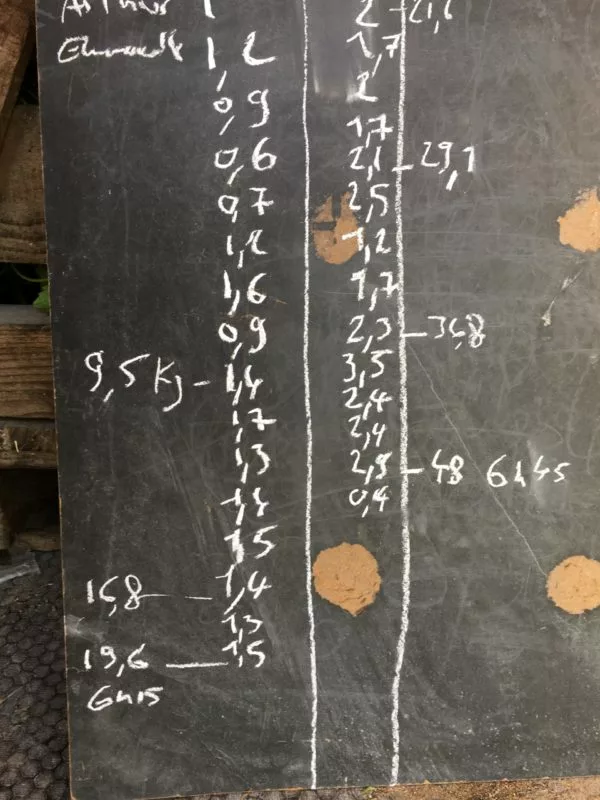 Arthur 1 2 - 21,6
1,2 1,7
0,9 2
1,7
0,6 2,1 - 29,1
0,7 2,5
1,2 1,2
1,6 1,7
0,9 2,3 - 36,8
9,5 Kg - 1,4 3,5
1,7 2,4
2,4
1,3 2,9 - 48 6h45
1,4 0,4
1,5
16,8 - 1,4
1,3
19,6 - 1,5
6h15